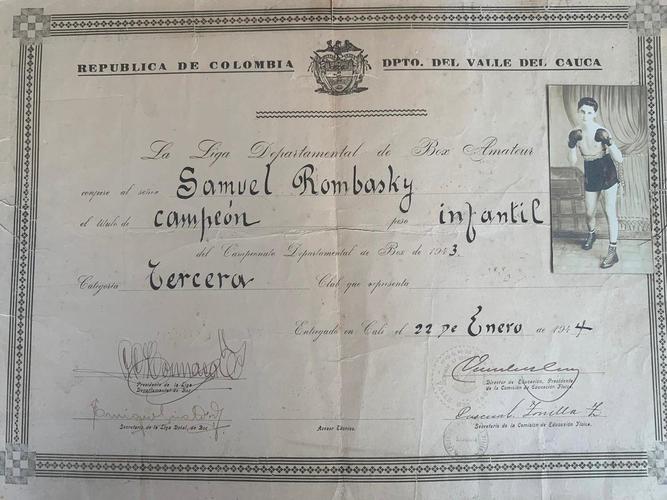 REPUBLICA DE COLOMBIA DPTO. DEL VALLE DEL CAUCA
La Liga Departamental de Box Amateur
confiere al señor Samuel Rombasky
el título de campeón peso infantil
del Campeonato Departamental de Box de 1943.
Categoría Tercera Club que representa
Entregado en Cali el 22 de Enero de 1944
Presidente de la Liga
Departamental de Box.
Director de Educación, Presidente
de la Comisión de Educación Física.
Secretario de la Liga Dptal. de Box
Asesor Técnico.
Secretario de la Comisión de Educación Física.